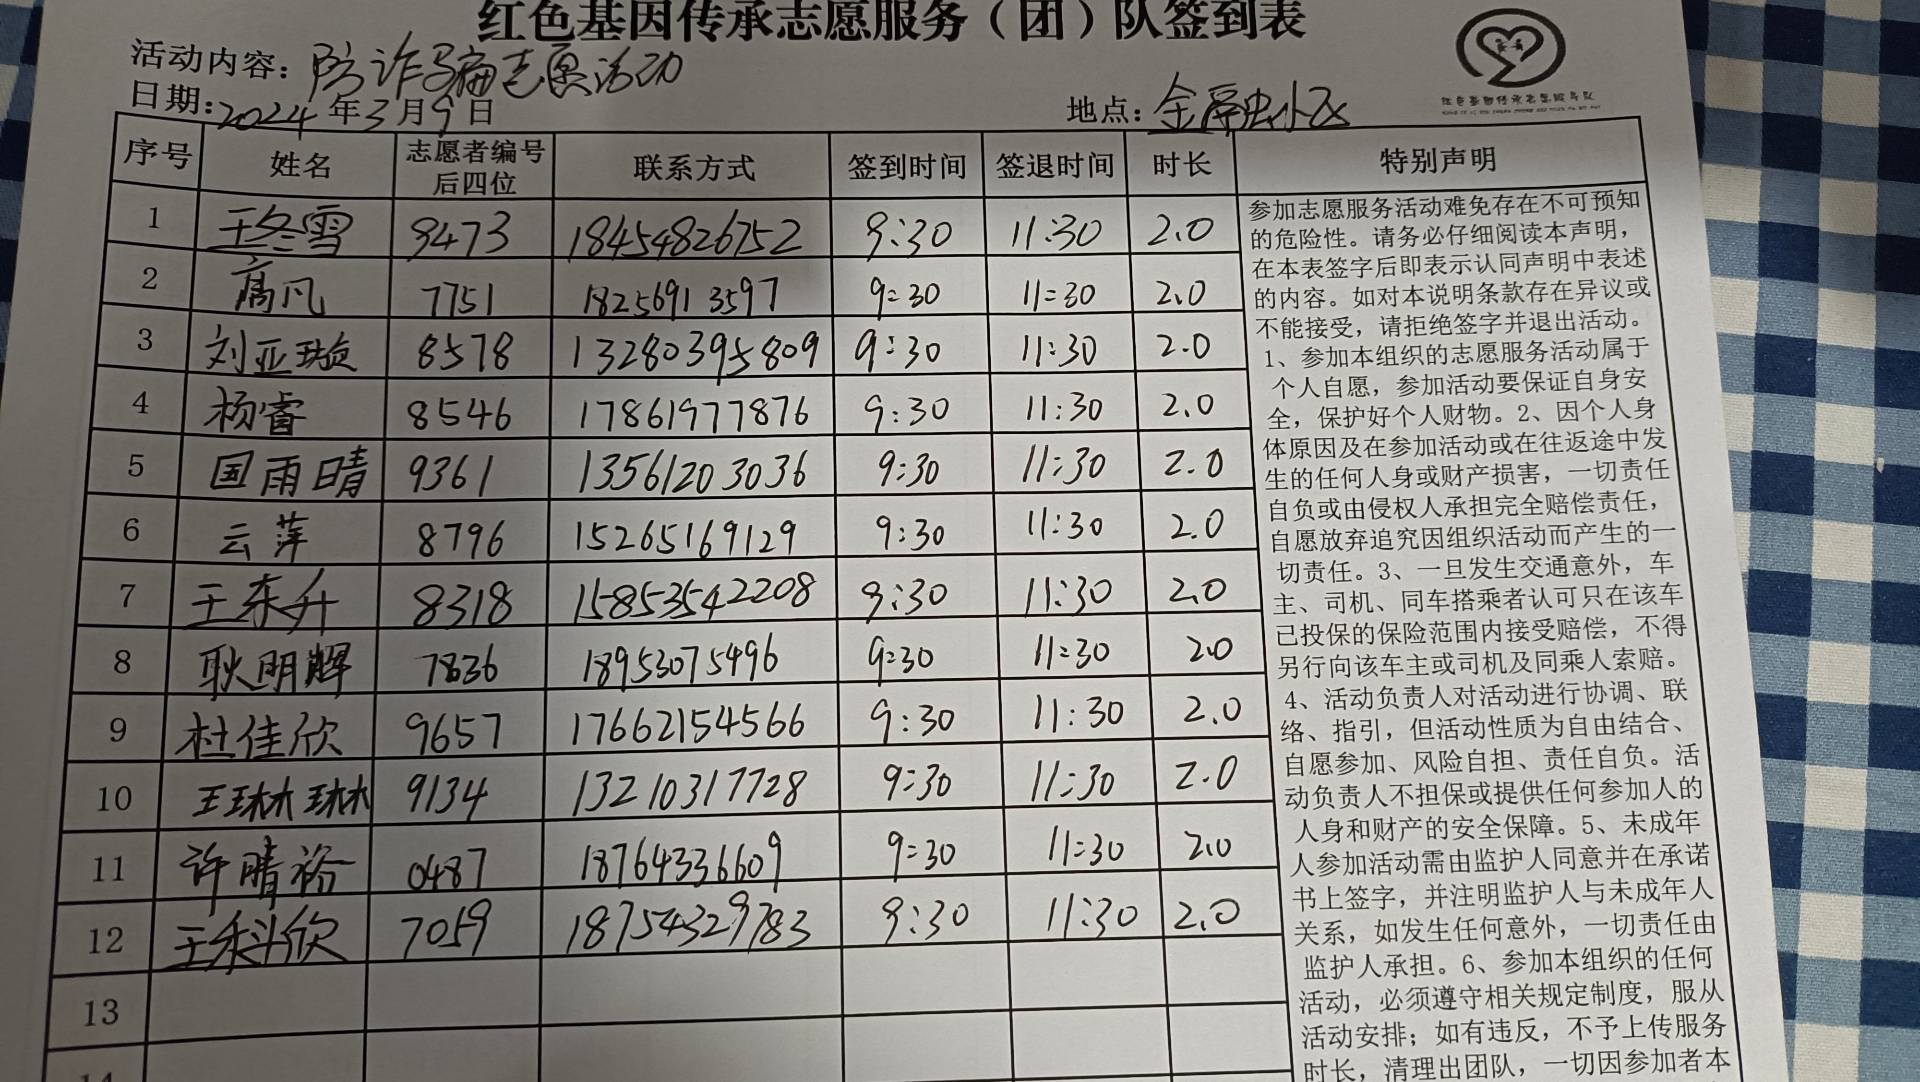 红色基因传承志愿服务（团）队签到表
活动内容：防诈骗志愿活动
日期：2024年3月9日 地点：金融小区
序号 姓名 志愿者编号后四位 联系方式 签到时间 签退时间 时长 特别声明
1 王冬雪 9473 18454826752 9:30 11:30 2.0
2 高凡 7751 18256913597 9:30 11:30 2.0
3 刘亚璇 8578 13280395809 9:30 11:30 2.0
4 杨睿 8546 17861977876 9:30 11:30 2.0
5 国雨晴 9361 13561203036 9:30 11:30 2.0
6 云萍 8796 15265169129 9:30 11:30 2.0
7 王东升 8318 15853542208 9:30 11:30 2.0
8 耿明辉 7836 18953075496 9:30 11:30 2.0
9 杜佳欣 9657 17662154566 9:30 11:30 2.0
10 王琳琳 9134 13210317728 9:30 11:30 2.0
11 许晴裕 0487 18764336609 9:30 11:30 2.0
12 王科欣 7059 18754329783 9:30 11:30 2.0
13
14
参加志愿服务活动难免存在不可预知
的危险性。请务必仔细阅读本声明，
在本表签字后即表示认同声明中表述
的内容。如对本说明条款存在异议或
不能接受，请拒绝签字并退出活动。
1、参加本组织的志愿服务活动属于
个人自愿，参加活动要保证自身安
全，保护好个人财物。2、因个人身
体原因及在参加活动或在往返途中发
生的任何人身或财产损害，一切责任
自负或由侵权人承担完全赔偿责任，
自愿放弃追究因组织活动而产生的一
切责任。3、一旦发生交通意外，车
主、司机、同车搭乘者认可只在该车
已投保的保险范围内接受赔偿，不得
另行向该车主或司机及同乘人索赔。
4、活动负责人对活动进行协调、联
络、指引，但活动性质为自由结合、
自愿参加、风险自担、责任自负。活
动负责人不担保或提供任何参加人的
人身和财产的安全保障。5、未成年
人参加活动需由监护人同意并在承诺
书上签字，并注明监护人与未成年人
关系，如发生任何意外，一切责任由
监护人承担。6、参加本组织的任何
活动，必须遵守相关规定制度，服从
活动安排；如有违反，不予上传服务
时长，清理出团队，一切因参加者本